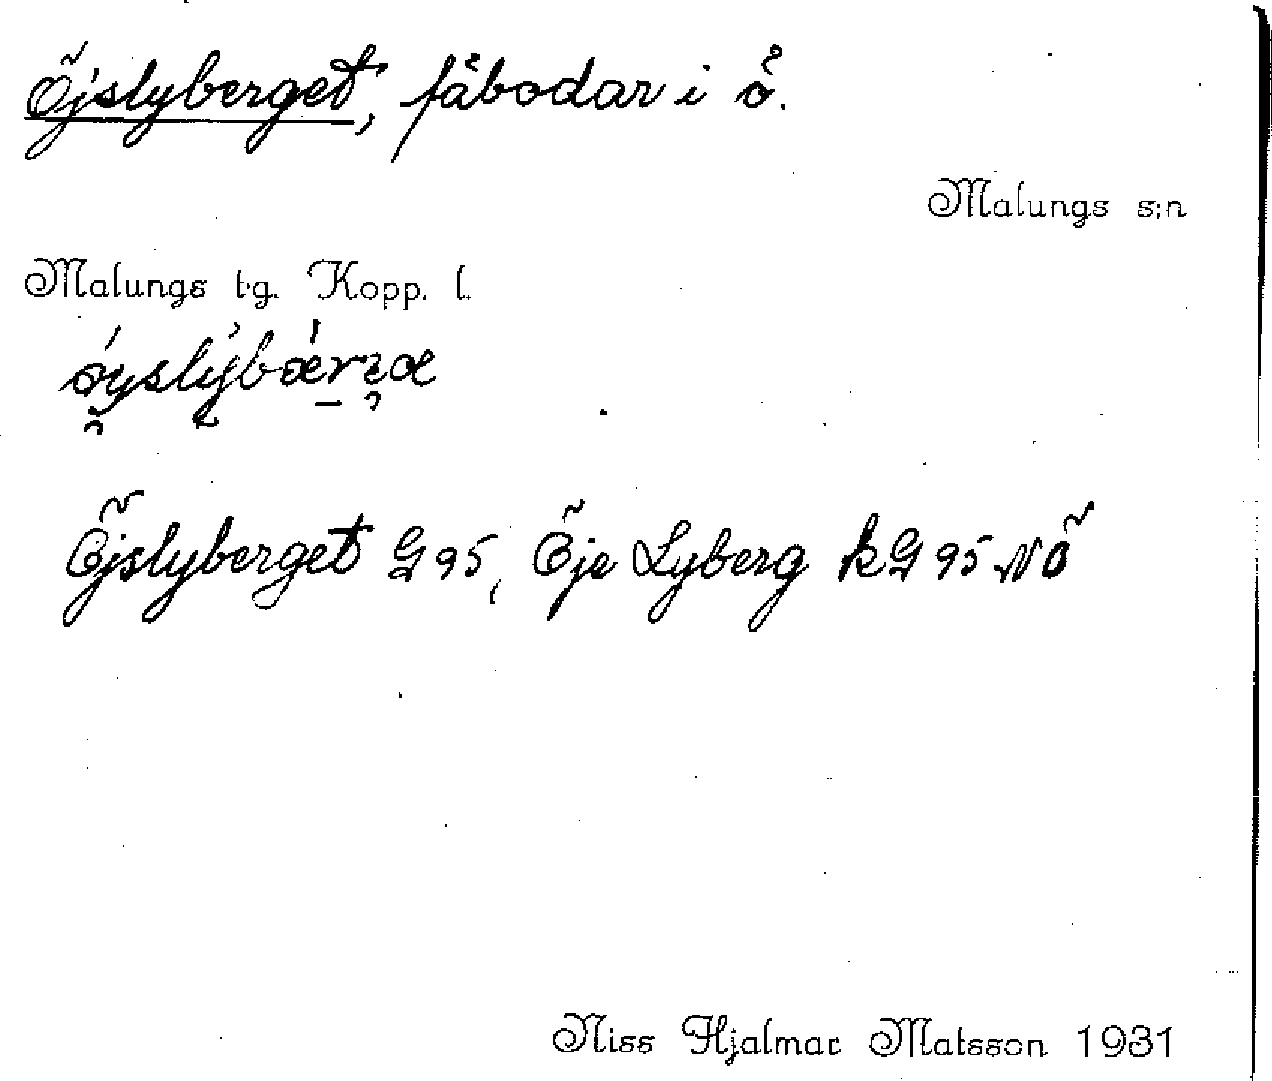 Öjslyberget, fäbodar i ö.
Malungs s:n
Malungs tg. Kopp. l.
Öjslyberget G 95, Öje Lyberg k G 95 NÖ
Niss Hjalmar Matsson 1931